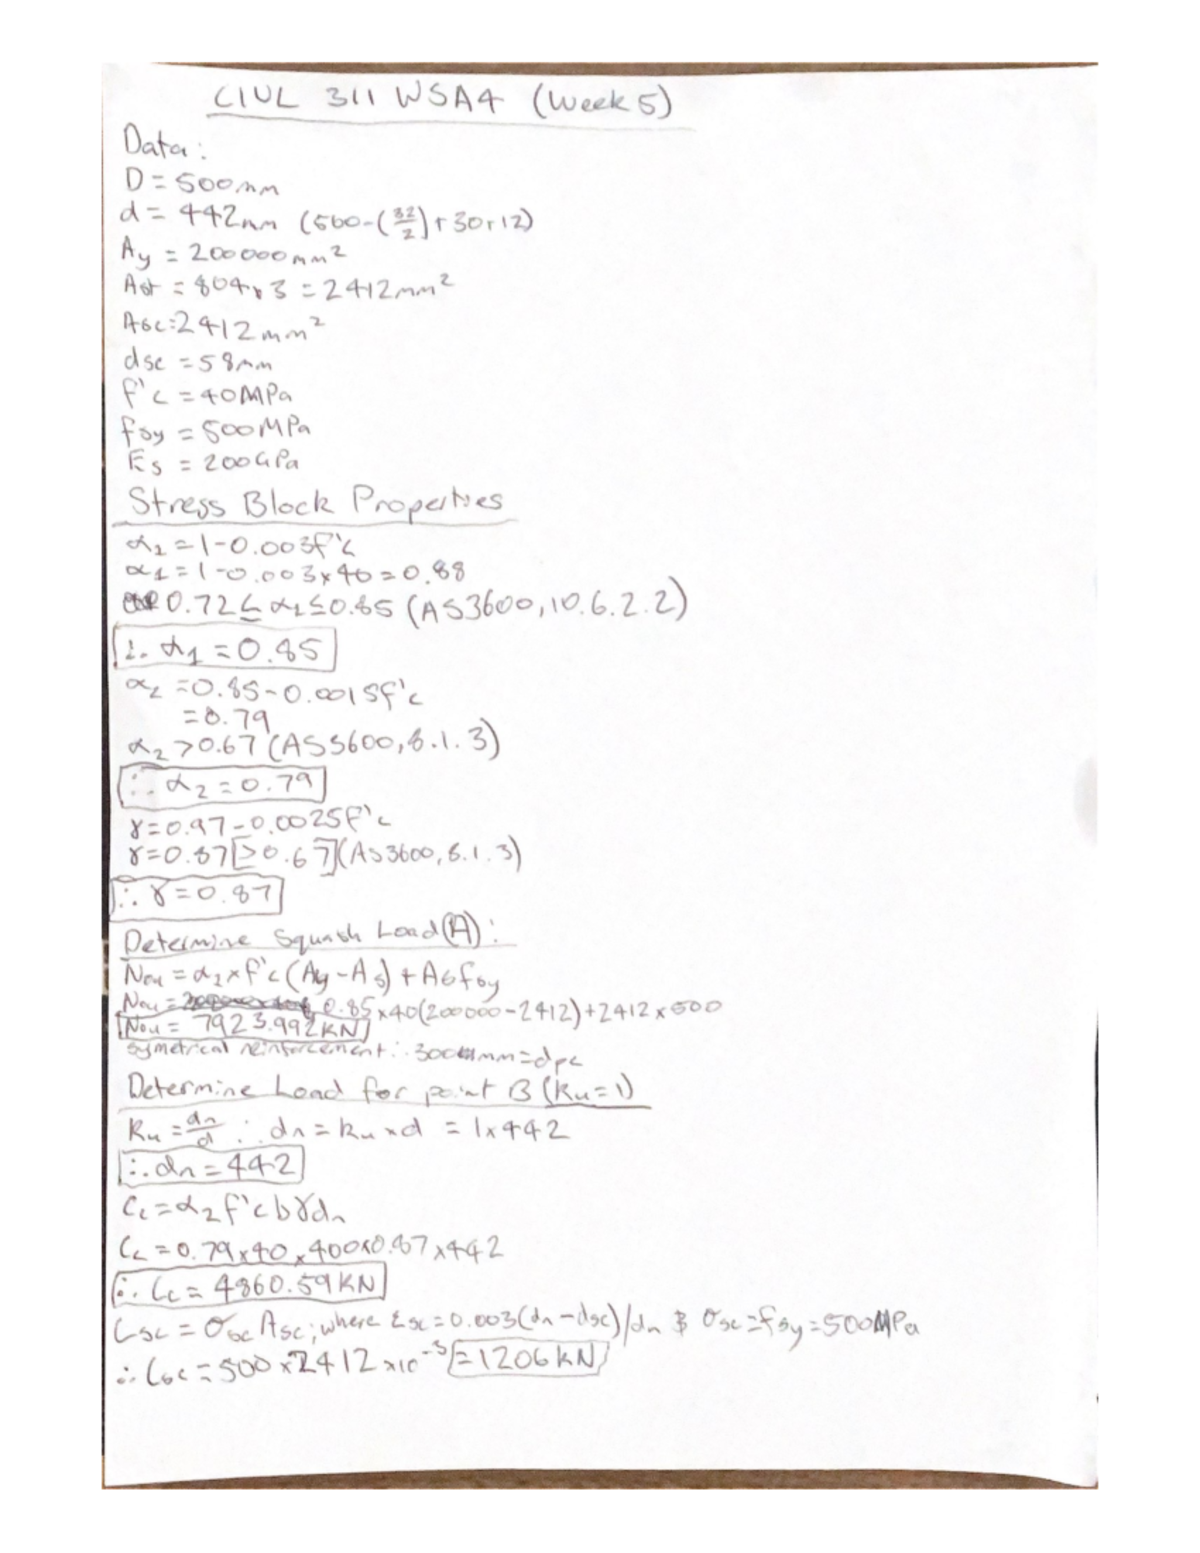 CIVL 311 WSA4 (Week 5)
Data:
D = 500mm
d = 442mm (500-(32/2)+30+12)
Ag = 200000mm²
Ast = 804x3 = 2412mm²
Asc = 2412mm²
dsc = 58mm
f'c = 40MPa
fsy = 500MPa
Es = 200GPa
Stress Block Properties
α1 = 1-0.003f'c
α1 = 1-0.003x40 = 0.88
0.72 ≤ α1 ≤ 0.85 (AS3600, 10.6.2.2)
∴ α1 = 0.85
α2 = 0.85-0.0015f'c
= 0.79
α2 > 0.67 (AS3600, 8.1.3)
∴ α2 = 0.79
γ = 0.97-0.0025f'c
γ = 0.87 [>0.67] (AS3600, 8.1.3)
∴ γ = 0.87
Determine Squash Load (A):
Nou = α1 x f'c (Ag - As) + As fsy
Nou = 0.85 x 40(200000-2412)+2412x500
Nou = 7923.992KN
Symetrical reinforcement ∴ 300mm = dpc
Determine Load for point B (Ku=1)
Ku = dn/d ∴ dn = ku x d = 1x442
∴ dn = 442
Cc = α2 f'c b γ dn
Cc = 0.79x40x400x0.87x442
∴ Cc = 4860.59KN
Csc = σsc Asc; where εsc = 0.003(dn-dsc)/dn & σsc = fsy = 500MPa
∴ Csc = 500x2412x10⁻³ = 1206KN